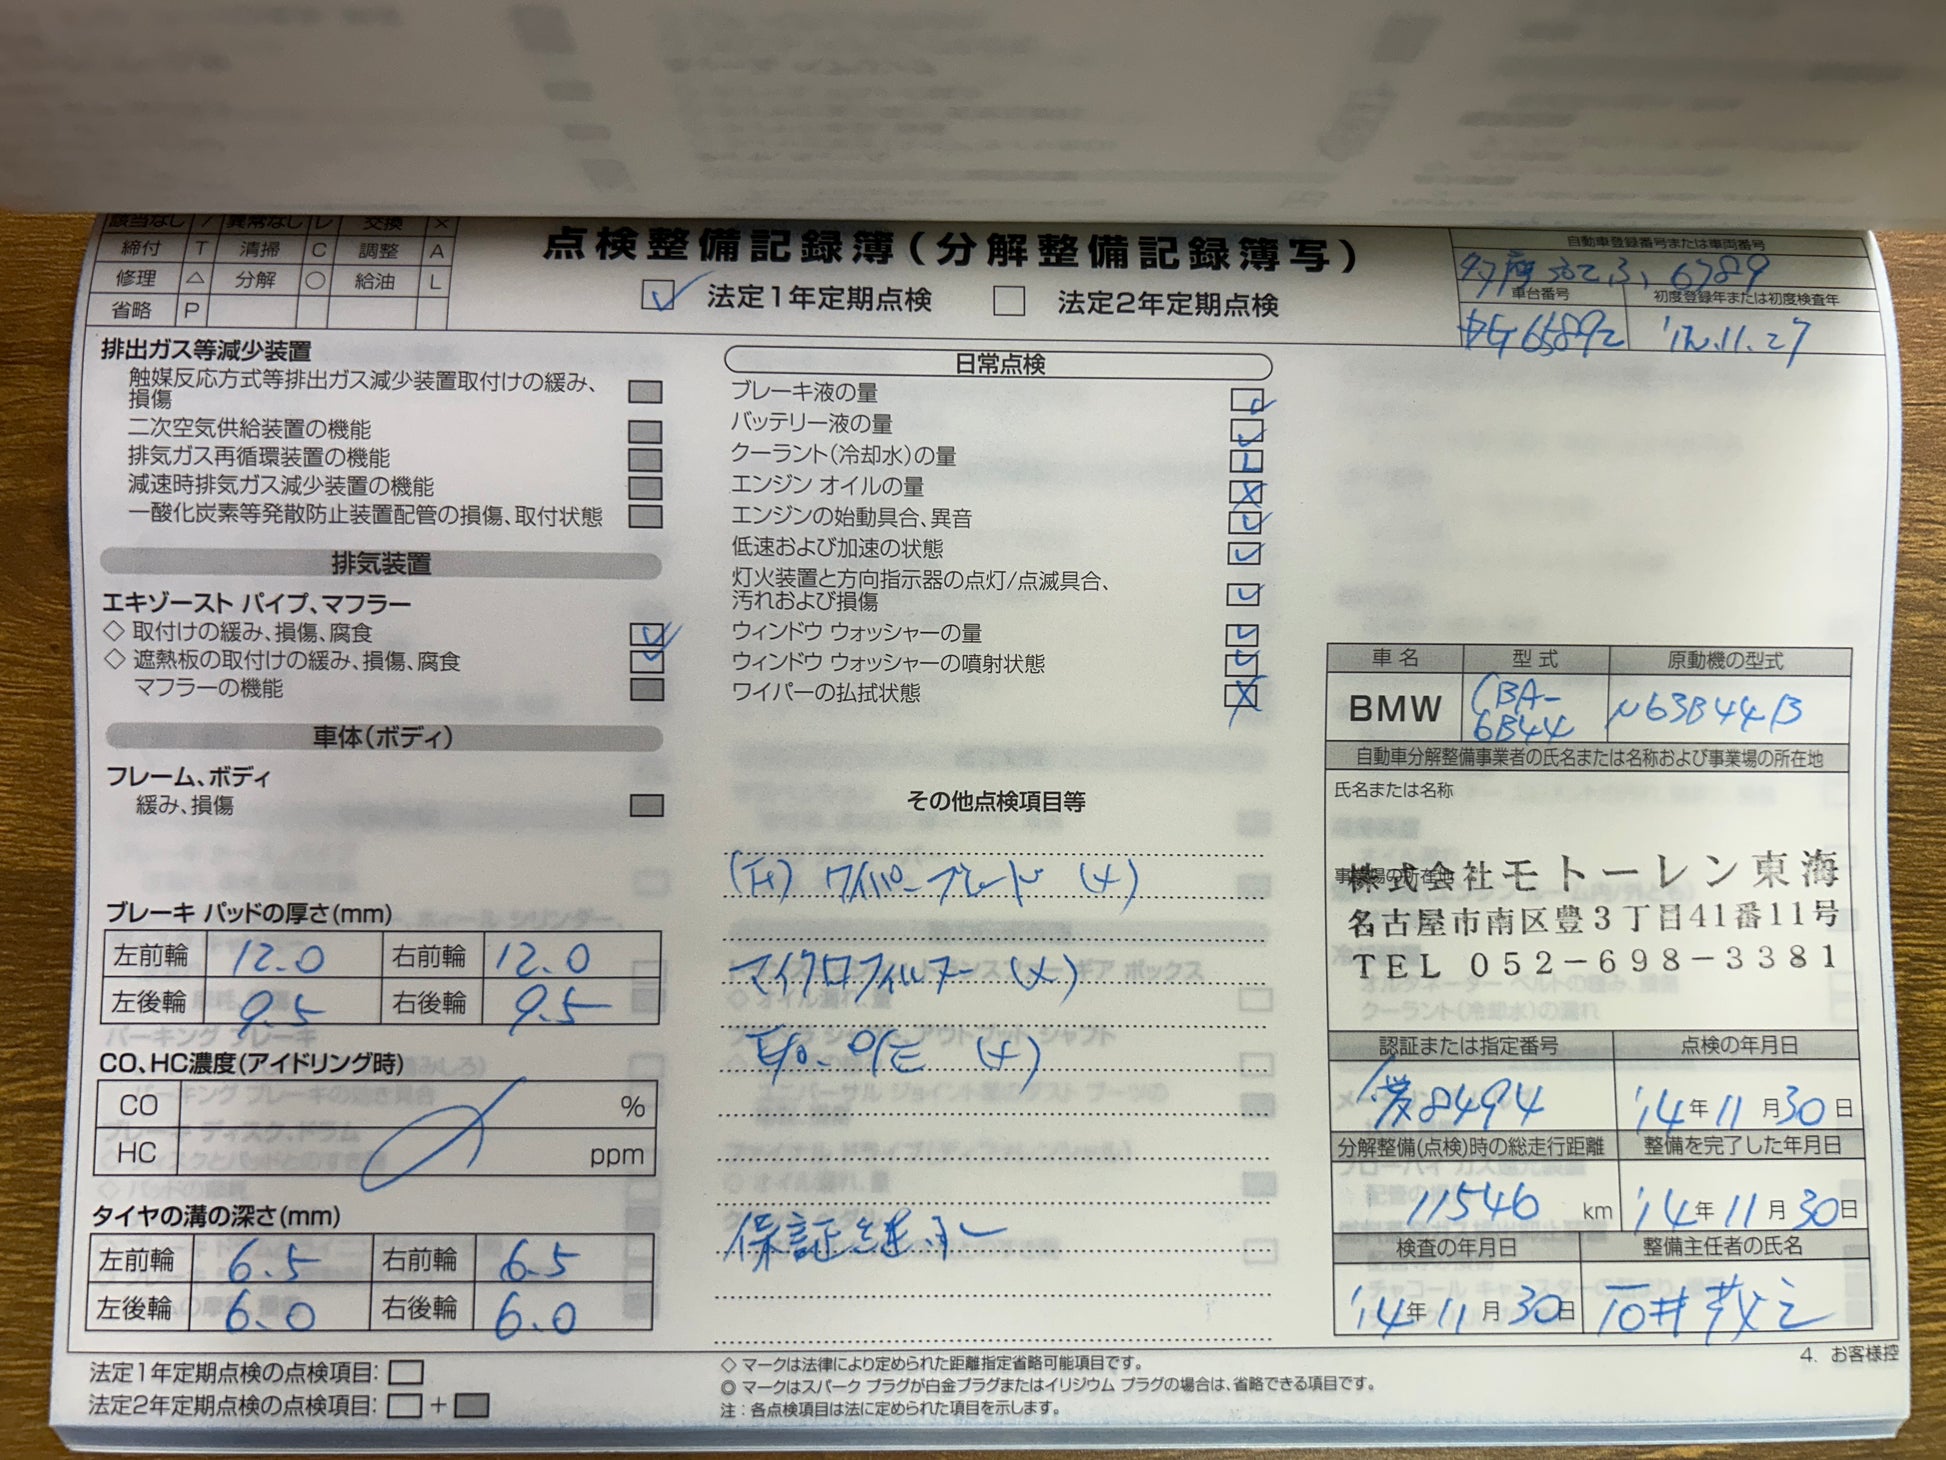 該当なし / 異常なし レ 交換 ×
締付 T 清掃 C 調整 A
修理 △ 分解 ○ 給油 L
省略 P
点検整備記録簿(分解整備記録簿写)
✓ 法定1年定期点検 □ 法定2年定期点検
自動車登録番号または車両番号
6789
車台番号 初度登録年または初度検査年
65892 '12.11.27
排出ガス等減少装置
触媒反応方式等排出ガス減少装置取付けの緩み、
損傷
二次空気供給装置の機能
排気ガス再循環装置の機能
減速時排気ガス減少装置の機能
一酸化炭素等発散防止装置配管の損傷、取付状態
排気装置
エキゾースト パイプ、マフラー
◇ 取付けの緩み、損傷、腐食 ✓
◇ 遮熱板の取付けの緩み、損傷、腐食 ✓
マフラーの機能
車体(ボディ)
フレーム、ボディ
緩み、損傷
ブレーキ パッドの厚さ(mm)
左前輪 12.0 右前輪 12.0
左後輪 9.5 右後輪 9.5
CO、HC濃度(アイドリング時)
CO %
HC ppm
タイヤの溝の深さ(mm)
左前輪 6.5 右前輪 6.5
左後輪 6.0 右後輪 6.0
法定1年定期点検の点検項目: □
法定2年定期点検の点検項目: □ + ■
日常点検
ブレーキ液の量 ✓
バッテリー液の量 ✓
クーラント(冷却水)の量 L
エンジン オイルの量 X
エンジンの始動具合、異音 ✓
低速および加速の状態 ✓
灯火装置と方向指示器の点灯/点滅具合、
汚れおよび損傷 ✓
ウィンドウ ウォッシャーの量 ✓
ウィンドウ ウォッシャーの噴射状態 ✓
ワイパーの払拭状態 X
その他点検項目等
ワイパーブレード (×)
マイクロフィルター (×)
(×)
保証継承
◇ マークは法律により定められた距離指定省略可能項目です。
◎ マークはスパーク プラグが白金プラグまたはイリジウム プラグの場合は、省略できる項目です。
注：各点検項目は法に定められた項目を示します。
車名 型式 原動機の型式
BMW CBA-6B44 N63B44B
自動車分解整備事業者の氏名または名称および事業場の所在地
氏名または名称
事業場の所在地
株式会社モトーレン東海
名古屋市南区豊3丁目41番11号
TEL 052-698-3381
認証または指定番号 点検の年月日
愛8494 '14年11月30日
分解整備(点検)時の総走行距離 整備を完了した年月日
11546 km '14年11月30日
検査の年月日 整備主任者の氏名
'14年11月30日 石井
4. お客様控